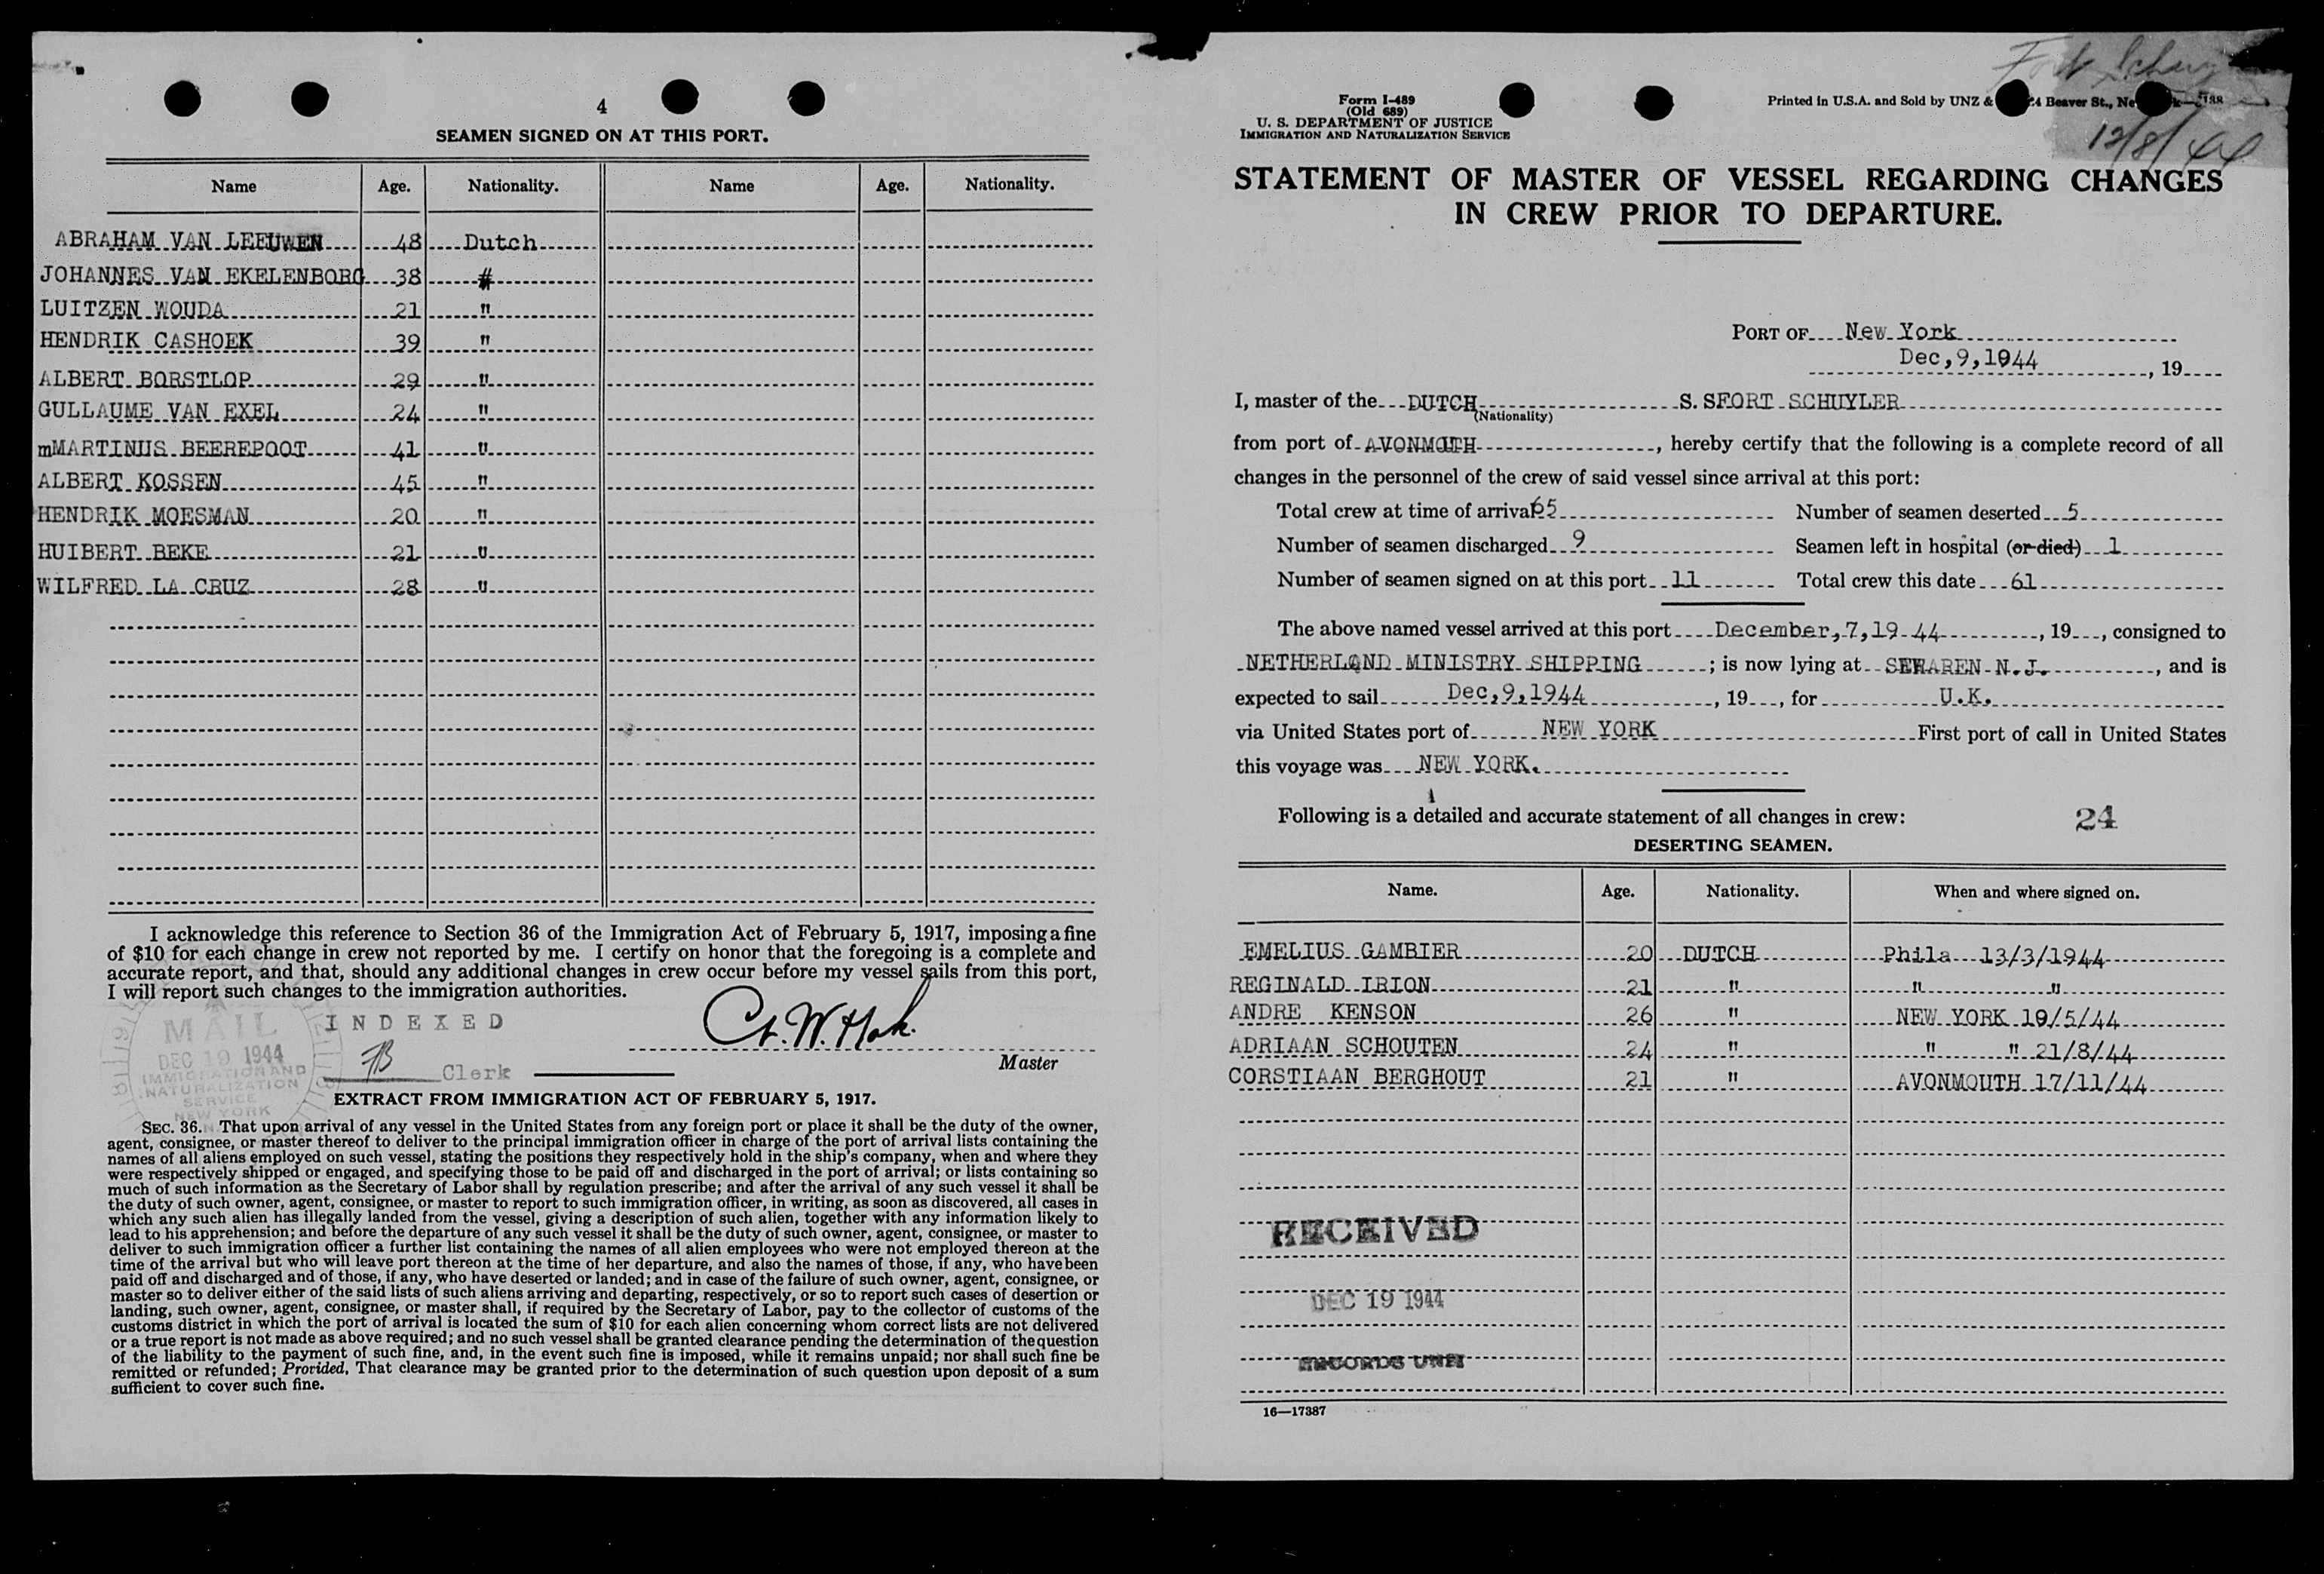 4
SEAMEN SIGNED ON AT THIS PORT.
Name Age. Nationality. Name Age. Nationality.
ABRAHAM VAN LEEUWEN 48 Dutch
JOHANNES VAN EKELENBORG 38 "
LUITZEN WOUDA 21 "
HENDRIK CASHOEK 39 "
ALBERT BORSTLOP 29 "
GULLAUME VAN EXEL 24 "
mMARTINUS BEEREPOOT 41 "
ALBERT KOSSEN 45 "
HENDRIK MOESMAN 20 "
HUIBERT BEKE 21 "
WILFRED LA CRUZ 28 "
I acknowledge this reference to Section 36 of the Immigration Act of February 5, 1917, imposing a fine
of $10 for each change in crew not reported by me. I certify on honor that the foregoing is a complete and
accurate report, and that, should any additional changes in crew occur before my vessel sails from this port,
I will report such changes to the immigration authorities.
MAIL
DEC 19 1944
IMMIGRATION AND
NATURALIZATION
SERVICE
NEW YORK
INDEXED
Clerk
Master
EXTRACT FROM IMMIGRATION ACT OF FEBRUARY 5, 1917.
SEC. 36. That upon arrival of any vessel in the United States from any foreign port or place it shall be the duty of the owner,
agent, consignee, or master thereof to deliver to the principal immigration officer in charge of the port of arrival lists containing the
names of all aliens employed on such vessel, stating the positions they respectively hold in the ship's company, when and where they
were respectively shipped or engaged, and specifying those to be paid off and discharged in the port of arrival; or lists containing so
much of such information as the Secretary of Labor shall by regulation prescribe; and after the arrival of any such vessel it shall be
the duty of such owner, agent, consignee, or master to report to such immigration officer, in writing, as soon as discovered, all cases in
which any such alien has illegally landed from the vessel, giving a description of such alien, together with any information likely to
lead to his apprehension; and before the departure of any such vessel it shall be the duty of such owner, agent, consignee, or master to
deliver to such immigration officer a further list containing the names of all alien employees who were not employed thereon at the
time of the arrival but who will leave port thereon at the time of her departure, and also the names of those, if any, who have been
paid off and discharged and of those, if any, who have deserted or landed; and in case of the failure of such owner, agent, consignee, or
master so to deliver either of the said lists of such aliens arriving and departing, respectively, or so to report such cases of desertion or
landing, such owner, agent, consignee, or master shall, if required by the Secretary of Labor, pay to the collector of customs of the
customs district in which the port of arrival is located the sum of $10 for each alien concerning whom correct lists are not delivered
or a true report is not made as above required; and no such vessel shall be granted clearance pending the determination of the question
of the liability to the payment of such fine, and, in the event such fine is imposed, while it remains unpaid; nor shall such fine be
remitted or refunded; Provided, That clearance may be granted prior to the determination of such question upon deposit of a sum
sufficient to cover such fine.
Form I-489
(Old 689)
U. S. DEPARTMENT OF JUSTICE
IMMIGRATION AND NATURALIZATION SERVICE
Printed in U.S.A. and Sold by UNZ & 24 Beaver St., Ne
12/8/44
STATEMENT OF MASTER OF VESSEL REGARDING CHANGES
IN CREW PRIOR TO DEPARTURE.
PORT OF New York
Dec,9,1944, 19
I, master of the DUTCH S.SFORT SCHUYLER
(Nationality)
from port of AVONMOUTH, hereby certify that the following is a complete record of all
changes in the personnel of the crew of said vessel since arrival at this port:
Total crew at time of arrival 65 Number of seamen deserted 5
Number of seamen discharged 9 Seamen left in hospital (or died) 1
Number of seamen signed on at this port 11 Total crew this date 61
The above named vessel arrived at this port December,7,19 44, 19, consigned to
NETHERLAND MINISTRY SHIPPING; is now lying at SEWAREN N.J., and is
expected to sail Dec,9,1944, 19, for U.K.
via United States port of NEW YORK First port of call in United States
this voyage was NEW YORK.
Following is a detailed and accurate statement of all changes in crew: 24
DESERTING SEAMEN.
Name. Age. Nationality. When and where signed on.
EMELIUS GAMBIER 20 DUTCH Phila 13/3/1944
REGINALD IRION 21 " " "
ANDRE KENSON 26 " NEW YORK 19/5/44
ADRIAAN SCHOUTEN 24 " " " 21/8/44
CORSTIAAN BERGHOUT 21 " AVONMOUTH 17/11/44
RECEIVED
DEC 19 1944
RECORDS UNIT
16—17387